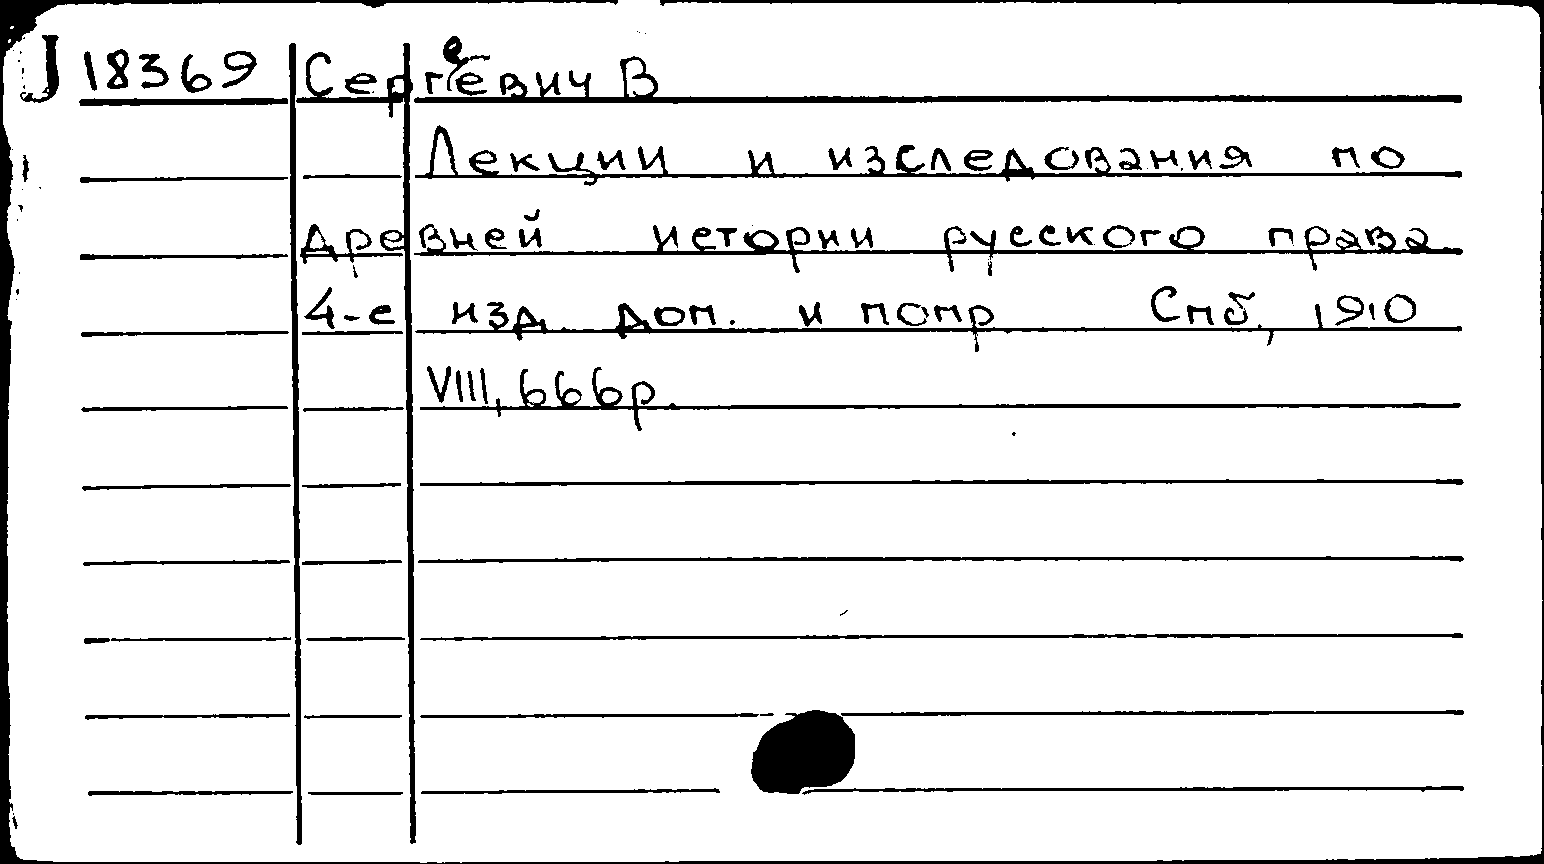 J 18369 Сергеевич В
Лекции и изследования по
древней истории русского права
4-е изд. доп. и попр. Спб., 1910
VIII, 666р.